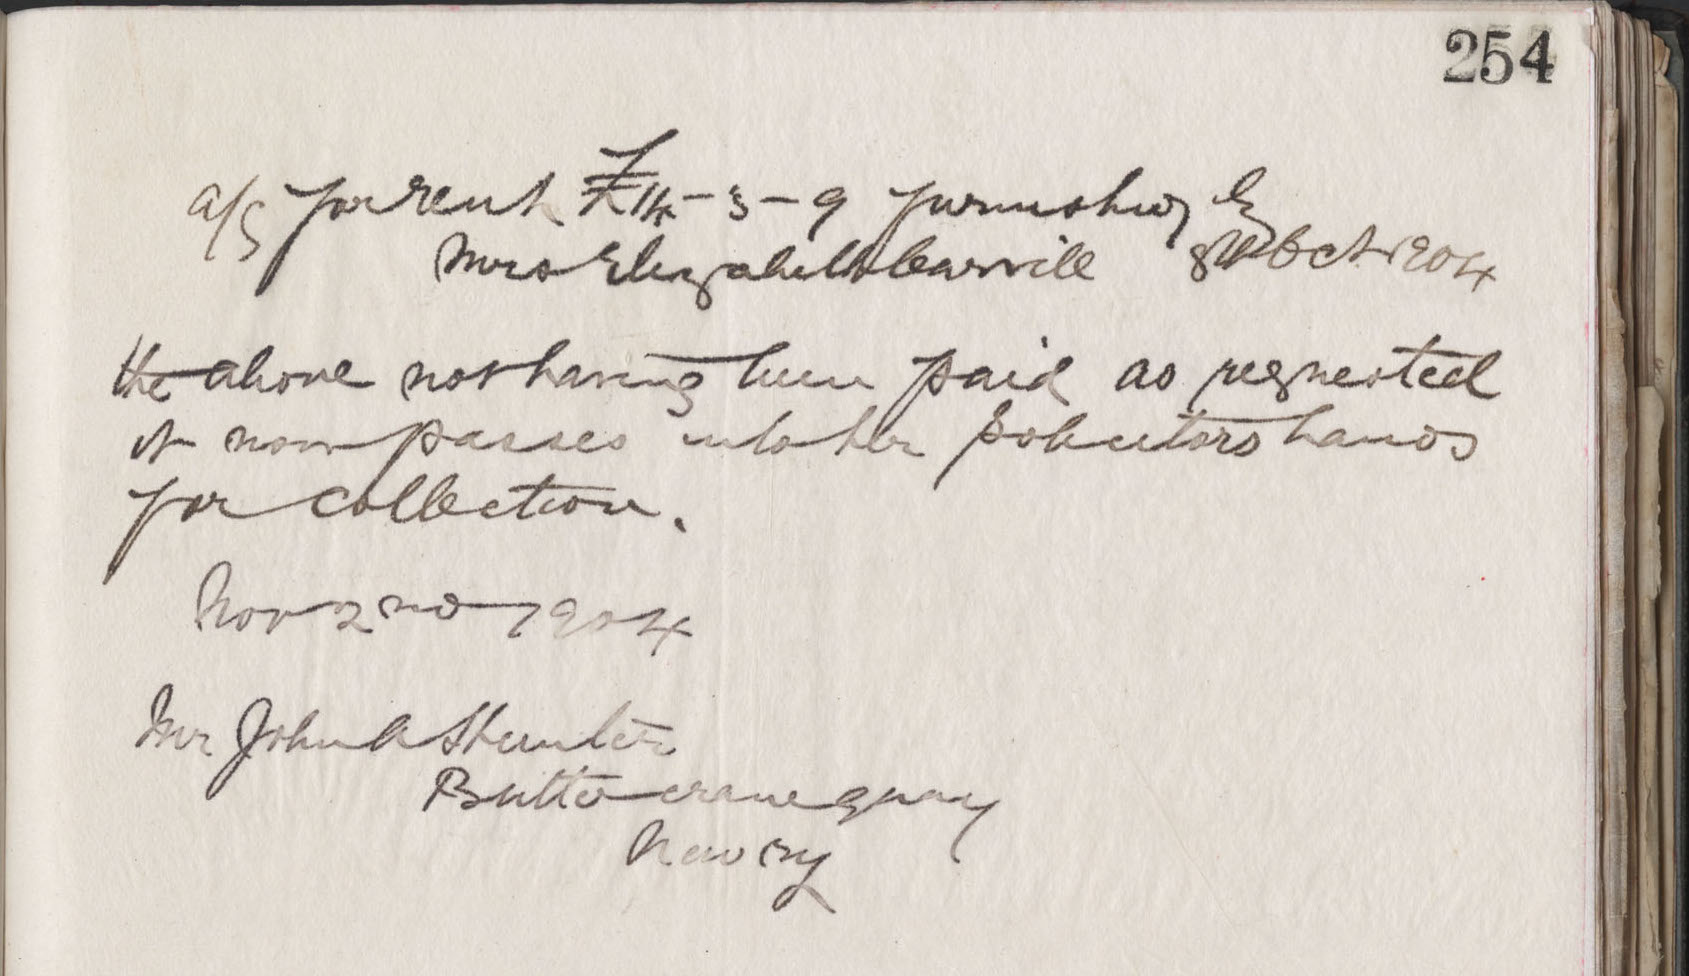 254
a/c for rent £14-3-9 furnished by
Mrs Elizabeth Carvill 8th Oct 1904
the above not having been paid as requested
it now passes into her Solicitors hands
for collection.
Nov 2nd 1904
Mr John A Hunter
Butter crane quay
Newry